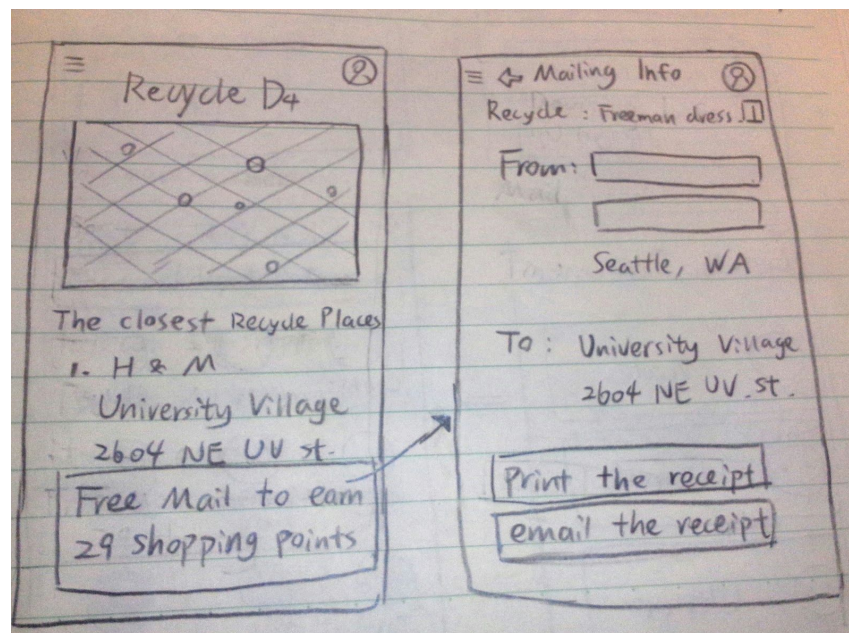 Recycle D4
The closest Recycle Places
1. H & M
University Village
2604 NE UV st.
Free Mail to earn
29 shopping points
Mailing Info
Recycle : Freeman dress
From:
Seattle, WA
To : University Village
2604 NE UV. st.
Print the receipt
email the receipt